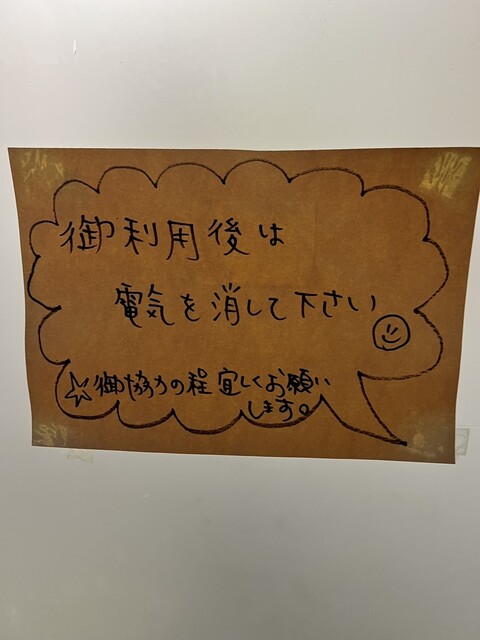 御利用後は
電気を消して下さい
☆御協力の程宜しくお願い
します。